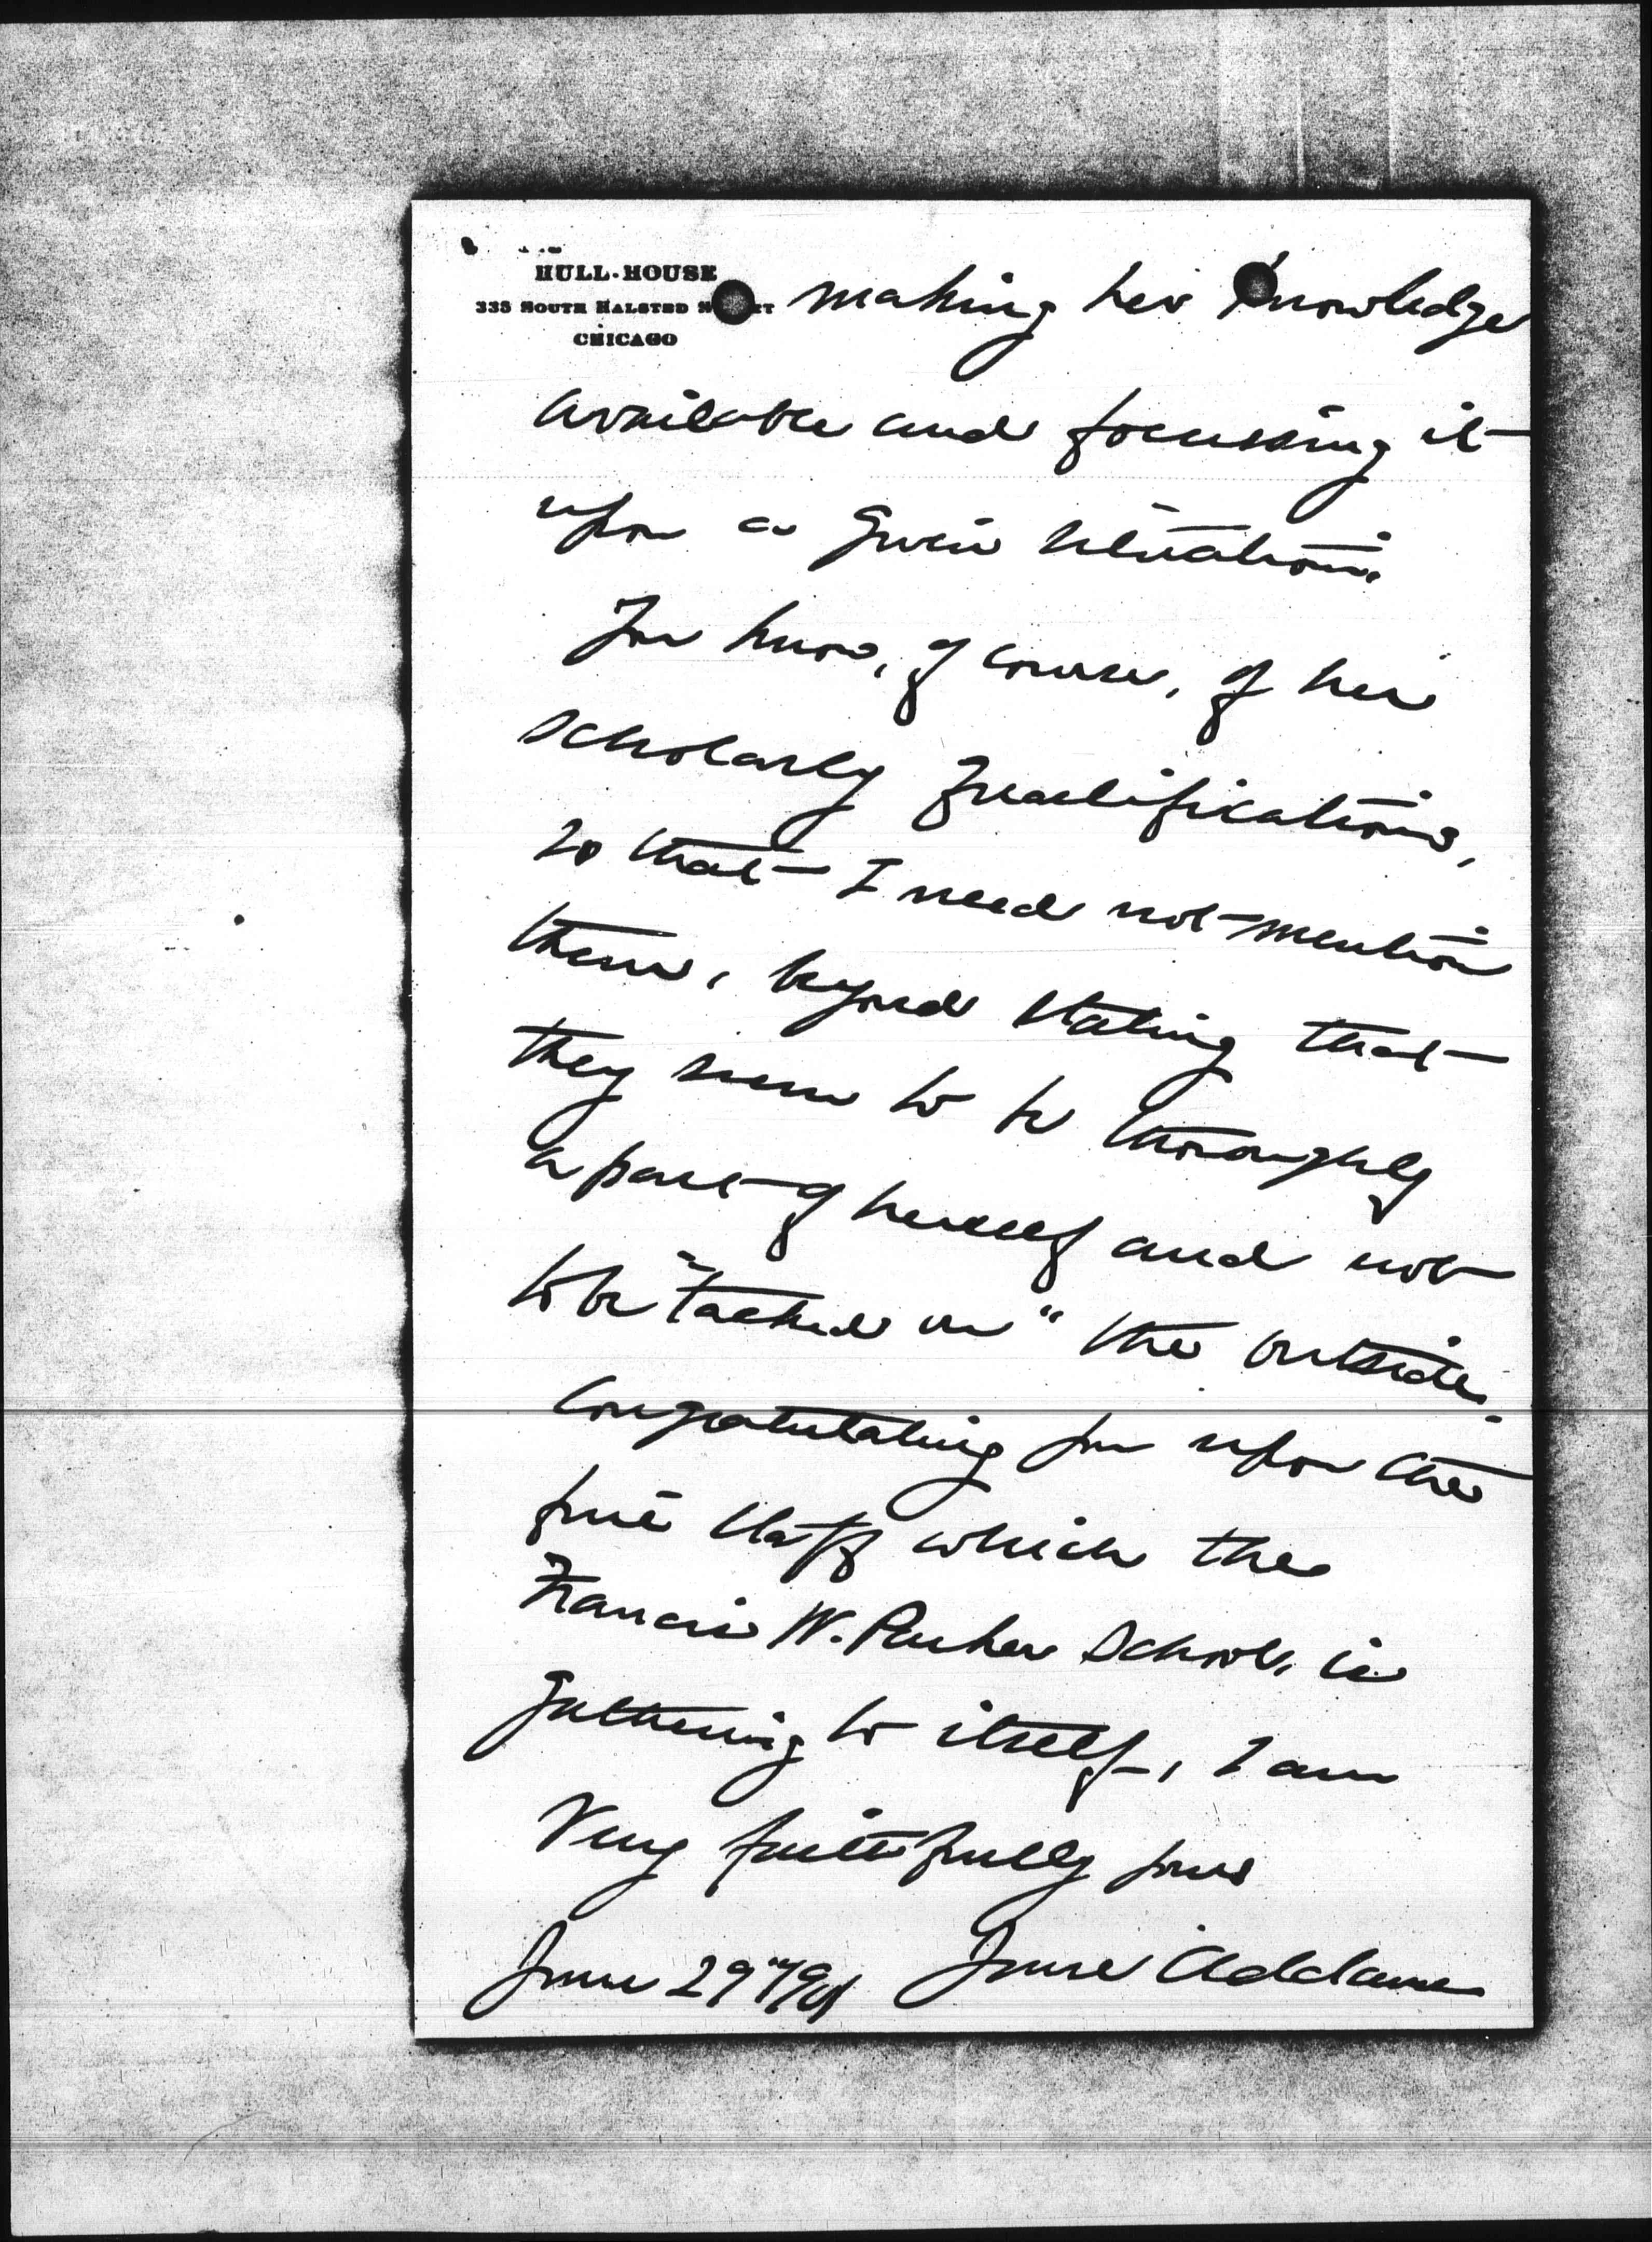 HULL-HOUSE
335 SOUTH HALSTED
CHICAGO
making her knowledge
available and focussing it
upon a given situation.
You know, of course, of her
scholarly qualifications,
so that I need not mention
them, beyond stating that
they seem to be thoroughly
a part of herself and not
to be "tacked on" the outside.
Congratulating you upon the
fine staff which the
Francis W. Parker School, is
gathering to itself, I am
Very faithfully yours
June 29" Jane Addams